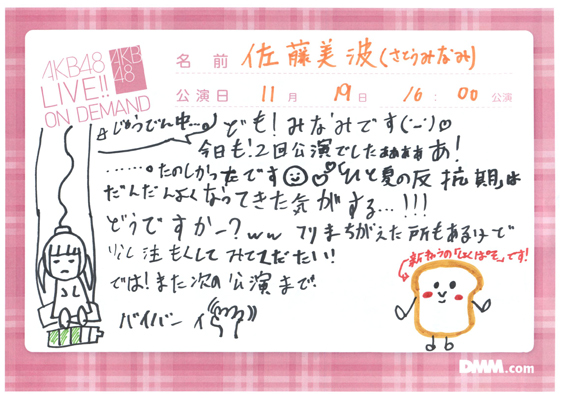 AKB48
LIVE!!
ON DEMAND
AKB
48
名前 佐藤美波(さとうみなみ)
公演日 11月 19日 16:00 公演
#じゅうでん中…。
ども!みなみです(·–·)♡
今日も!2回公演でしたぁぁぁぁあ!
……。たのしかったです 「ひと夏の反抗期」は
だんだんよくなってきた気がする…!!!
どうですかー?ww フリまちがえた所もあるけーで
少し注もくしてみてくだたい!
では!また次の公演まで
バイバーイ
新キャラの「しょくぱそ」です!
DMM.com